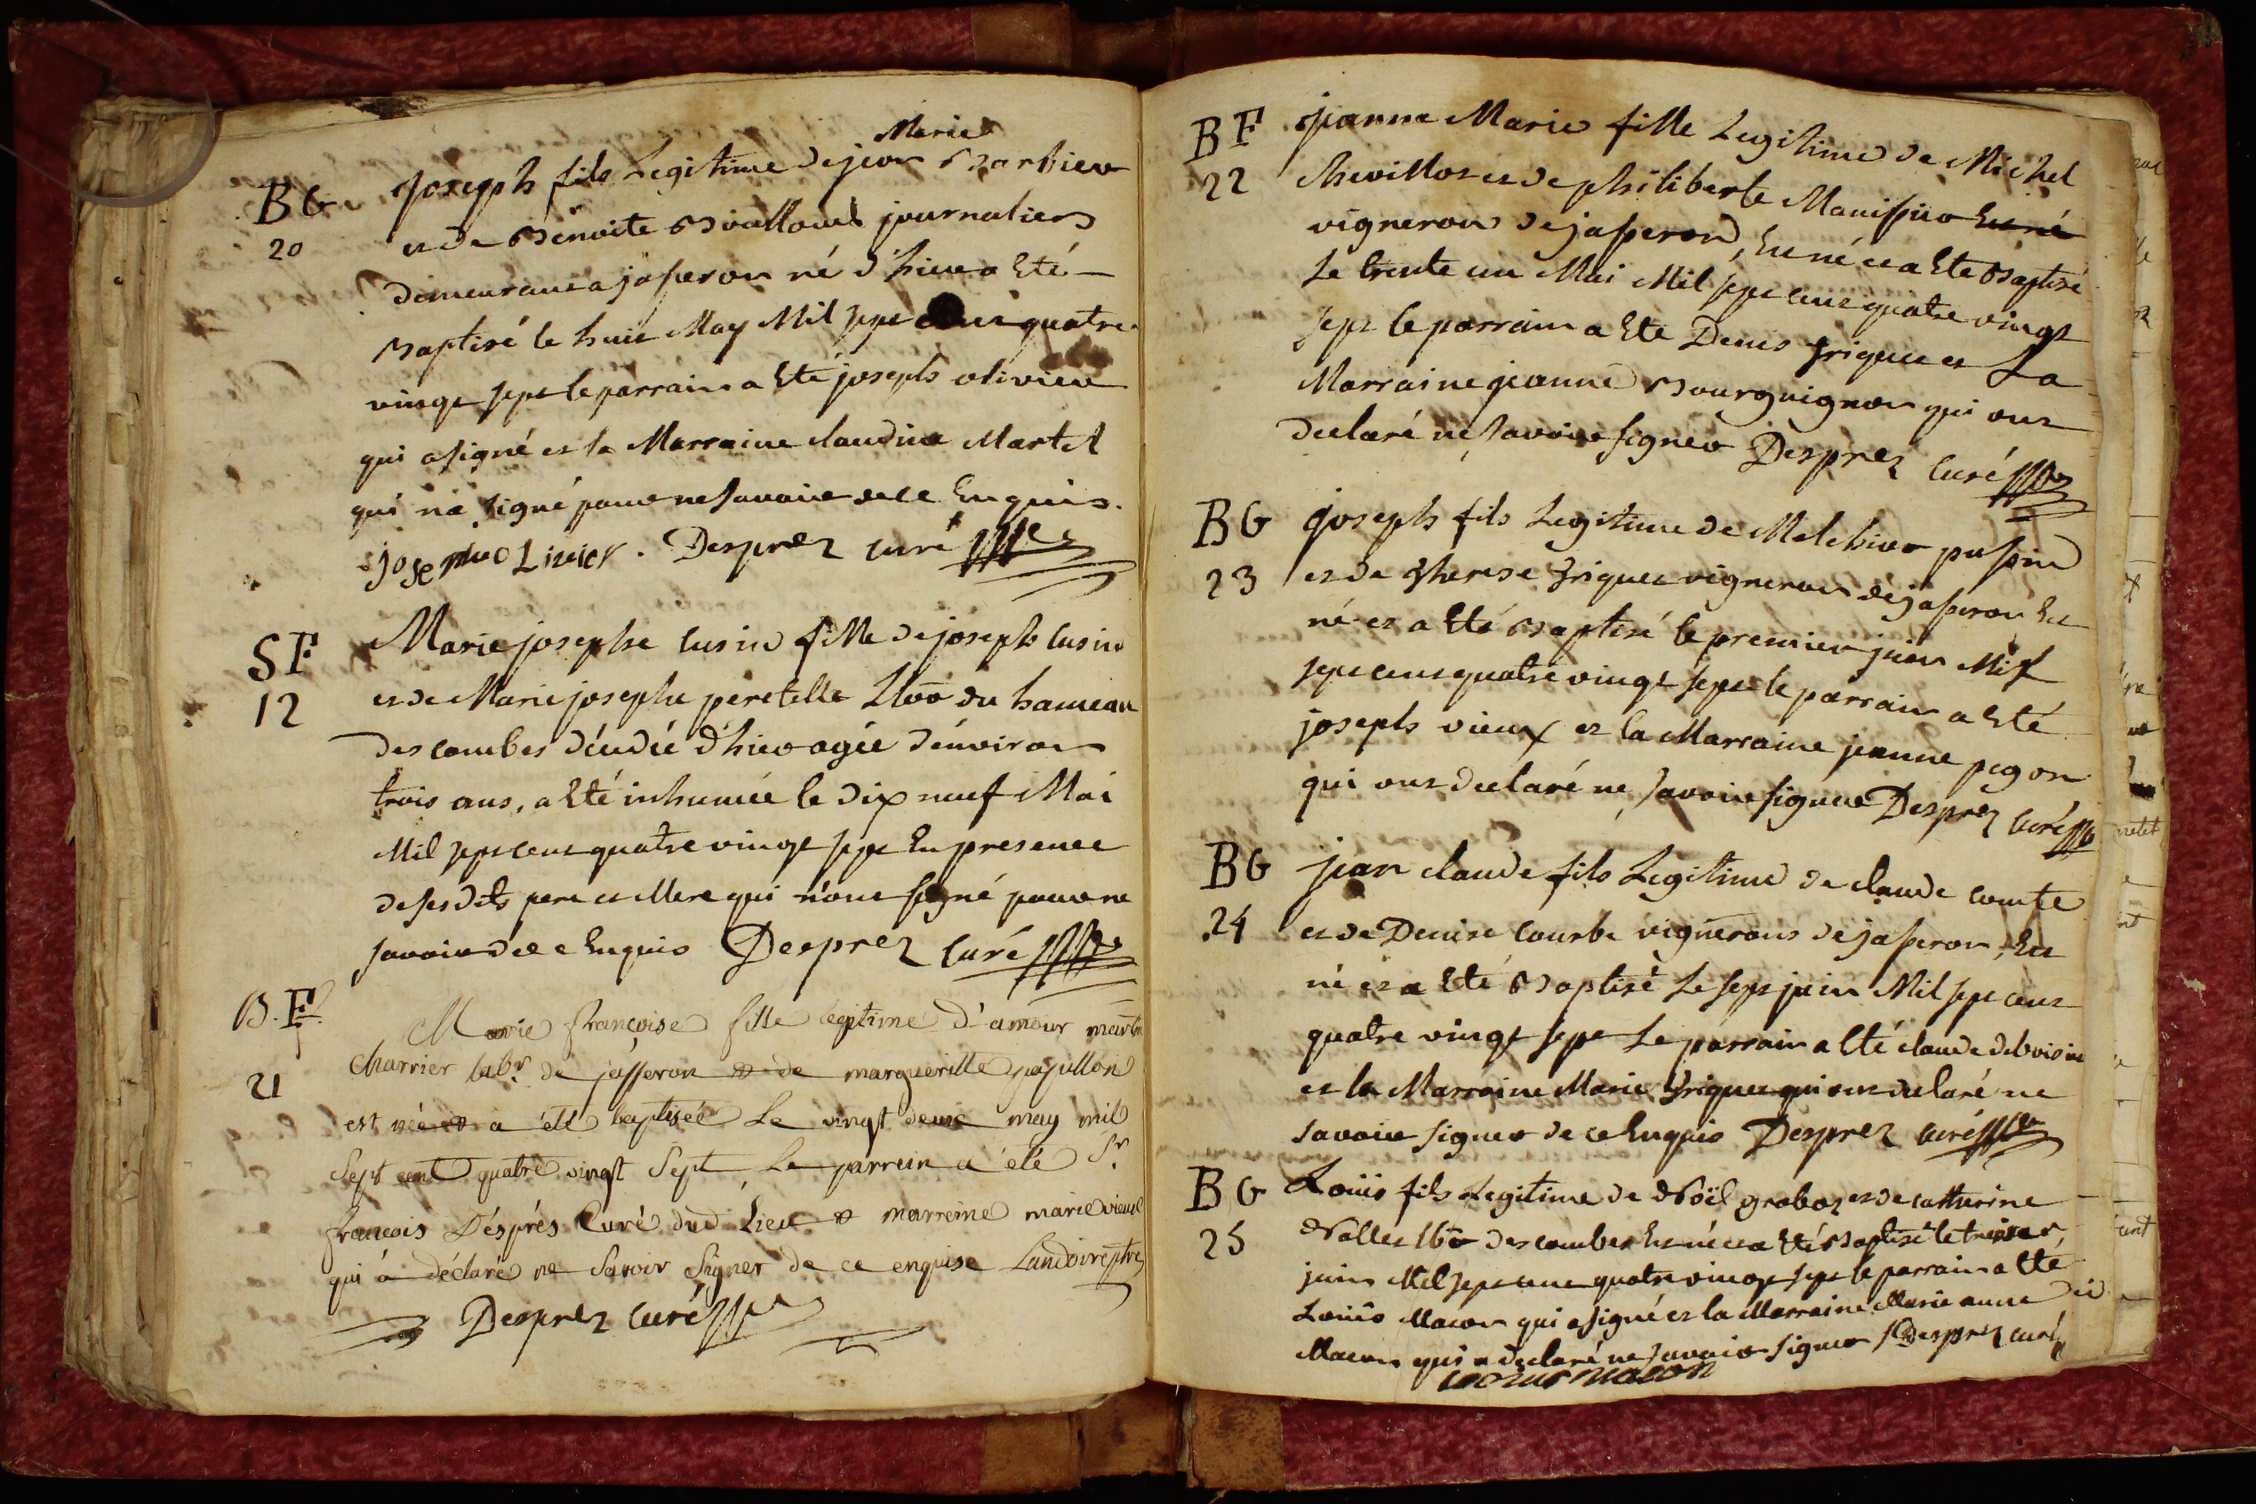 Marie
BG Joseph fils Legitime de jean Barbier
20 et de Benoite Brillouel journaliers
demeurant a jasseron né d'hier a Eté
Baptisé le huit May Mil sept cent quatre
vingt sept le parrain a Eté joseph olivier
qui a signé et la Marraine claudine Martel
qui n'a signé pour ne savoir de ce Enquis.
joseph olivier. Desprez curé
SF Marie josephe cusin fille de joseph cusin
12 et de Marie josephe peretelle du hameau
des combes décédée d'hier agée d'environ
trois ans, a Eté inhumée le dix neuf Mai
Mil sept cent quatre vingt sept En presence
de sesdits pere et Mere qui n'ont signé pour ne
savoir de ce Enquis Desprez Curé
B.F. Marie françoise fille legitime d'amour marie
21 Charrier labr. de jasseron & de margueritte papillon
est née & a été baptisée Le vingt deux may mil
Sept cent quatre vingt Sept Le parrein a été Sr.
françois Després Curé dud. Lieu & marreine marie vieux
qui à déclaré ne Savoir Signer de ce enquise Landoin ptre
Desprez curé
BF jeanne Marie fille Legitime de Michel
22 chevillot et de philiberte Manissier Est né
vigneron de jasseron, Est né et a Ete Baptisé
Le trente un Mai Mil sept cent quatre vingt
sept le parrain a Ete Denis friquet et La
Marraine jeanne Bourguignon qui ont
declaré ne savoir signer Desprez curé
BG joseph fils Legitime de Melchior pussin
23 et de therese friquet vigneron de jasseron Est
né et a Eté Baptisé le premier juin Mil
sept cent quatre vingt sept le parrain a Eté
joseph vieux et la Marraine jeanne pegon
qui ont declaré ne savoir signer Desprez curé
BG jean claude fils Legitime de claude comte
24 et de Denise courbe vignerons de jasseron, Est
né et a Eté Baptisé Le sept juin Mil sept cent
quatre vingt sept Le parrain a Eté claude debvoisin
et la Marraine Marie friquet qui ont declaré ne
savoir signer de ce Enquis Desprez curé
BG Loüis fils Legitime de Noël graboz et de catherine
25 Nallet des combes Est né et a Eté Baptisé le treize
juin Mil sept cent quatre vingt sept le parrain a Ete
Loüis Macon qui a signé et la Marraine Marie anne
Macon qui a declaré ne savoir signer Desprez curé
Louis macon